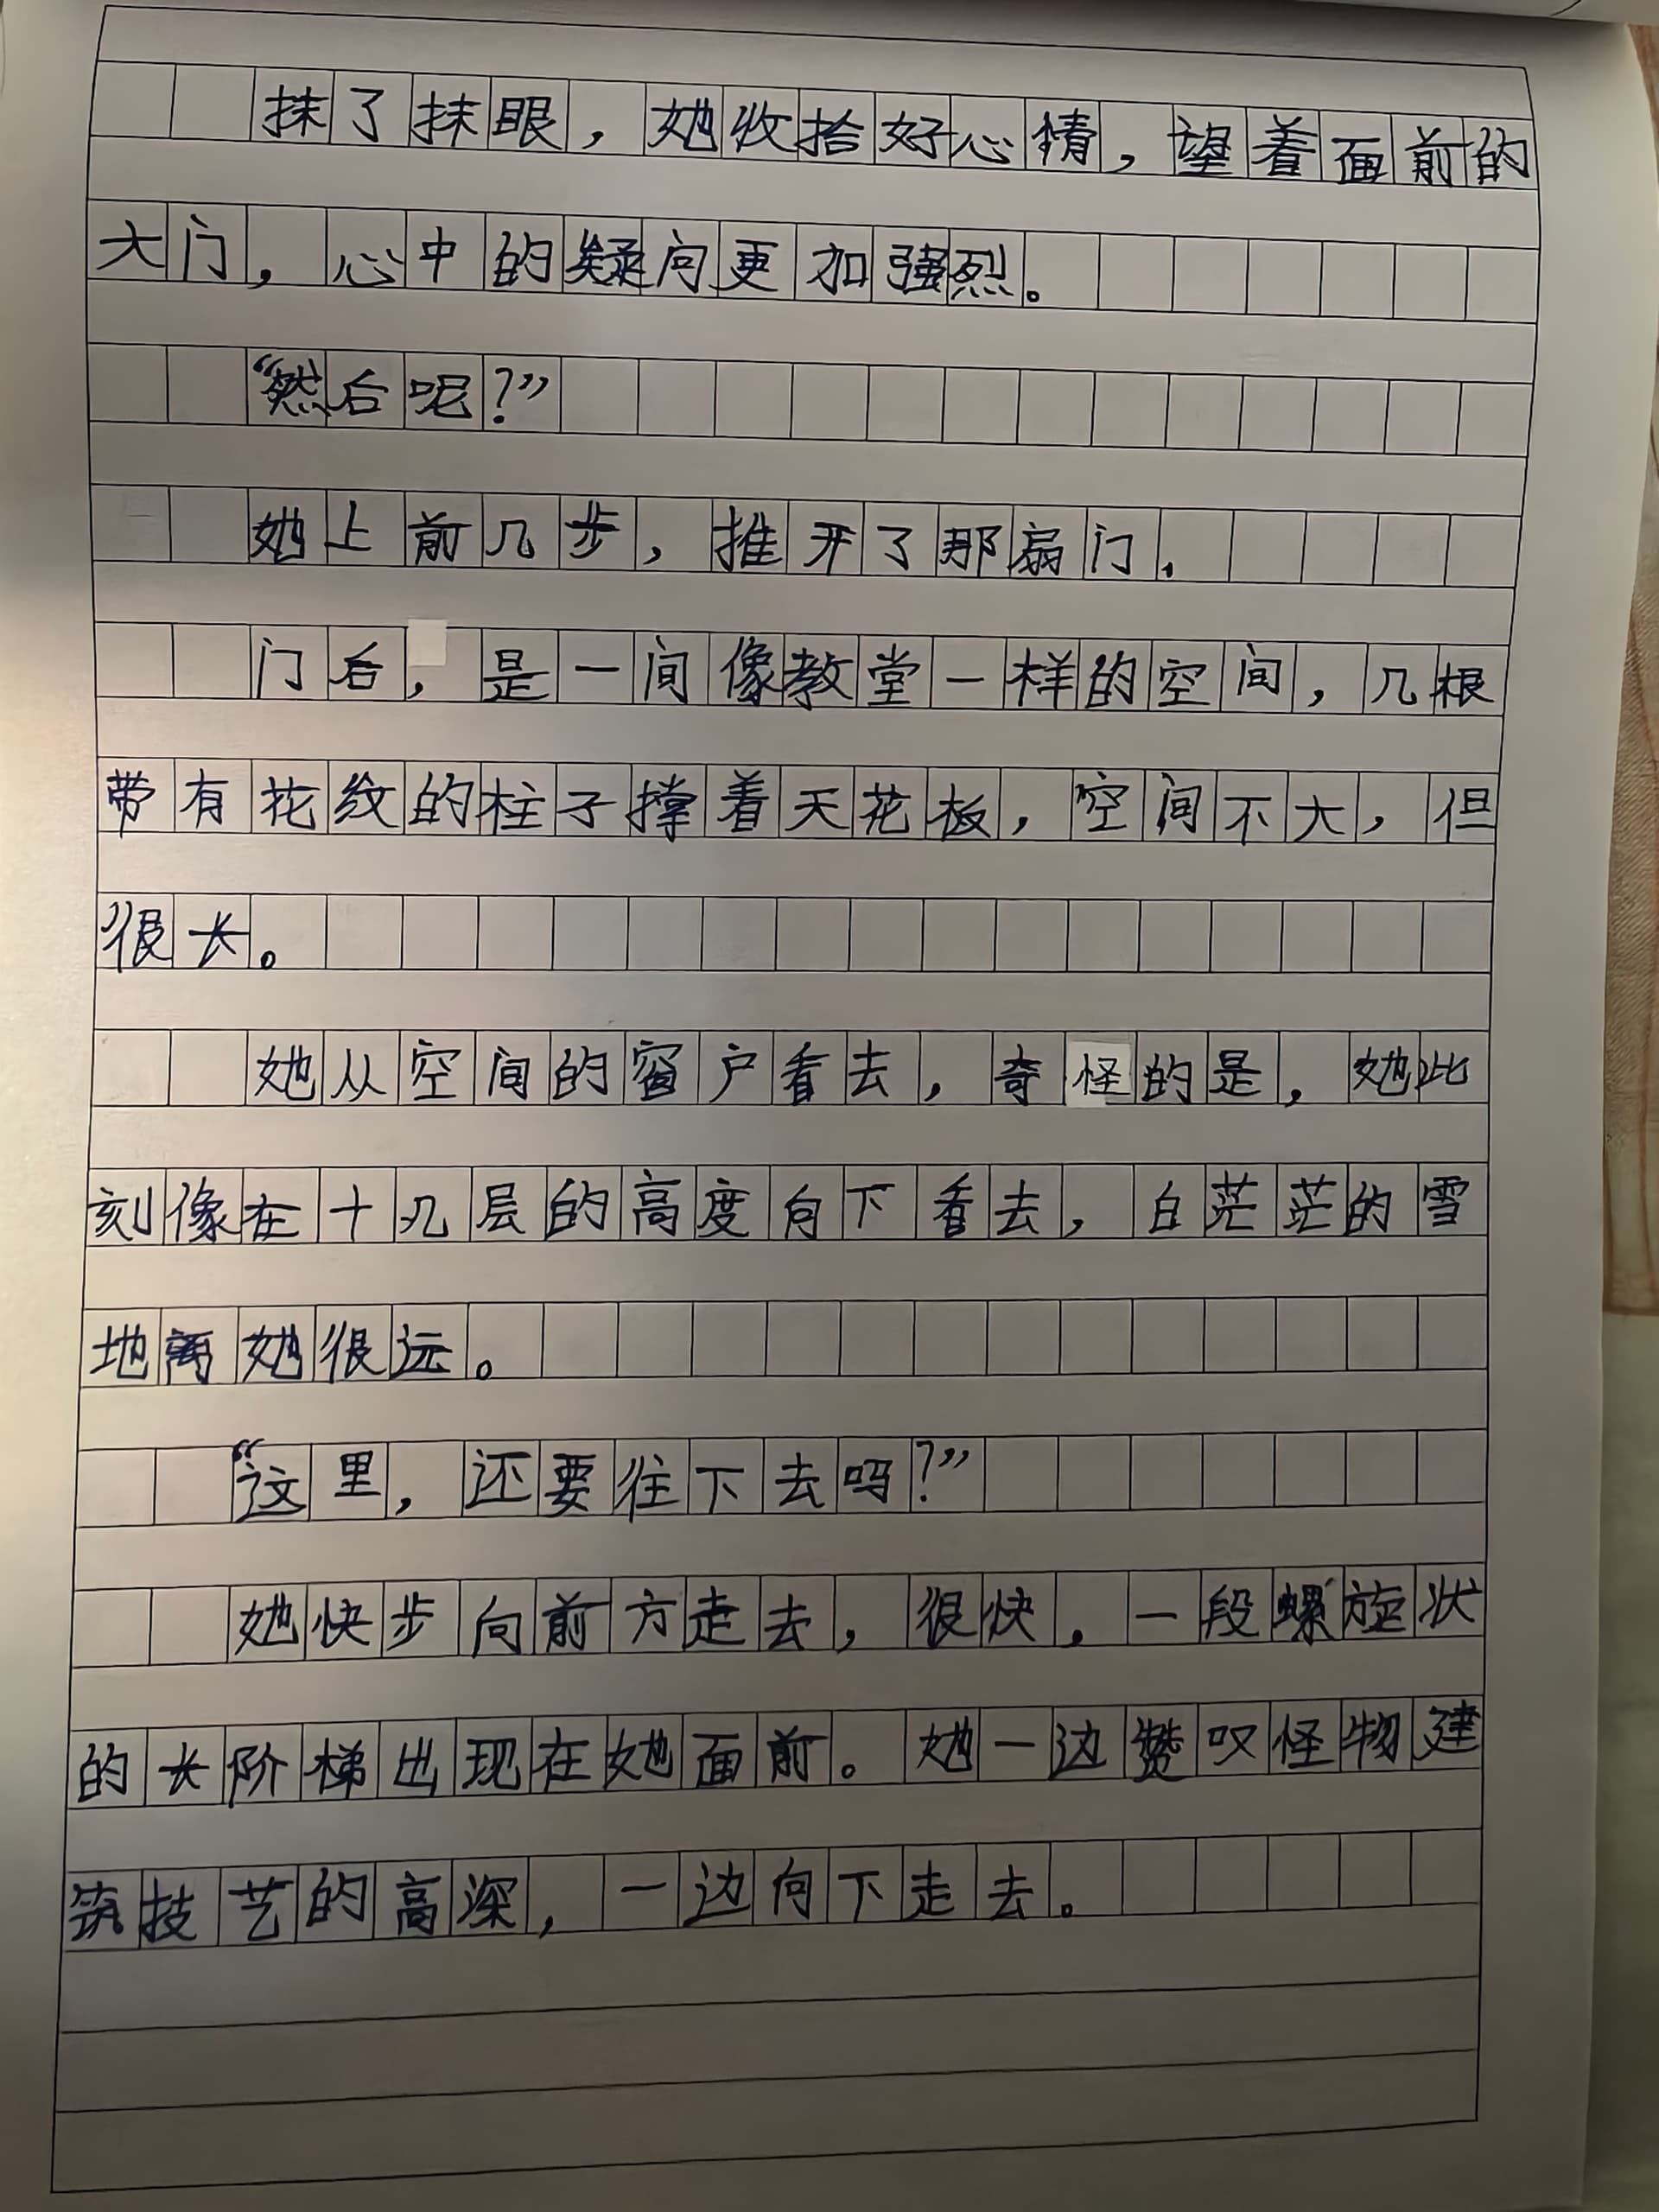 抹了抹眼，她收拾好心情，望着面前的
大门，心中的疑问更加强烈。
“然后呢？”
她上前几步，推开了那扇门。
门后，是一间像教堂一样的空间，几根
带有花纹的柱子撑着天花板，空间不大，但
很长。
她从空间的窗户看去，奇怪的是，她此
刻像在十几层的高度向下看去，白茫茫的雪
地离她很远。
“这里，还要往下去吗？”
她快步向前方走去，很快，一段螺旋状
的长阶梯出现在她面前。她一边赞叹怪物建
筑技艺的高深，一边向下走去。